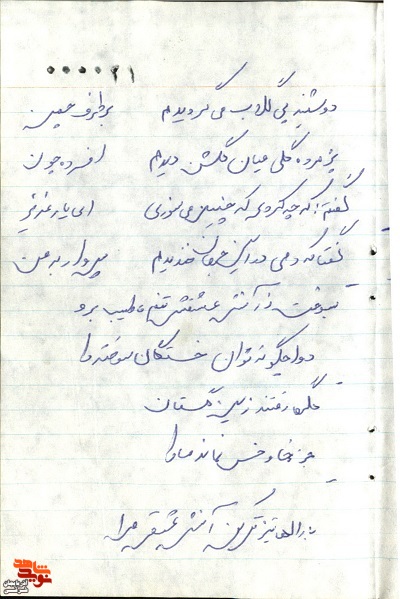 ۰۰۰۰۲۱
دوشنبه پی گلاب می گردیدم بر طرف چمن
پژمرده گلی میان گلشن دیدم افسرده چون
گفتم که چه کرده ای که چنین می سوزی ای یار عزیز
گفتا که دمی در این جهان خندیدم پس وای به من
بسوخت ز آتش عشقش تنم طبیب برو
دوا چگونه توان خستگان سوخته را
گلها رفتند زین گلستان
جز خار و خس نماند ما را
بارالها تیزتر کن آتش عشق مرا
شاهد
نوید